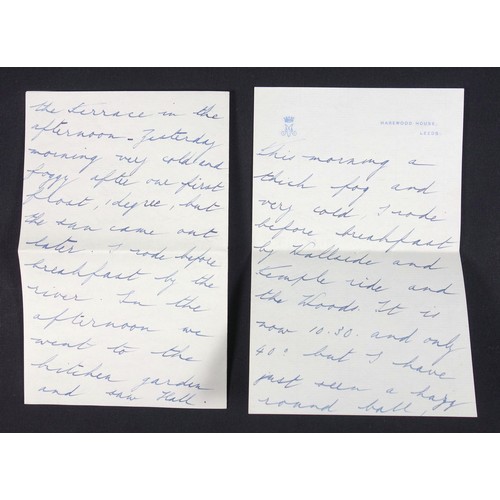 the terrace in the
afternoon - Yesterday
morning very cold and
foggy after our first
frost, 1 degree, but
the sun came out
later. I rode before
breakfast by the
river. In the
afternoon we
went to the
kitchen garden
and saw Hall.
HAREWOOD HOUSE,
LEEDS.
this morning a
thick fog and
very cold. I rode
before breakfast
by Wallside and
Temple ride and
the Woods. It is
now 10.30. and only
40° but I have
just seen a hazy
round ball,